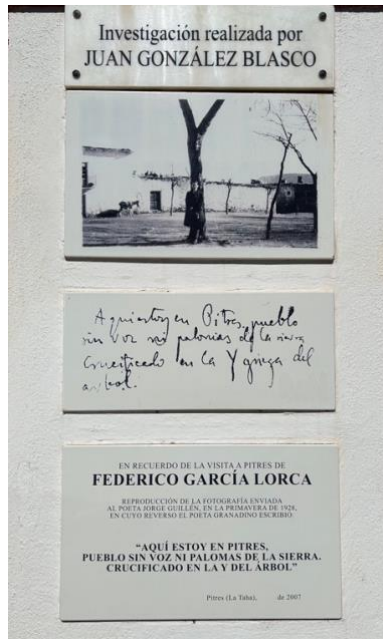 Investigación realizada por
JUAN GONZÁLEZ BLASCO
Aquí estoy en Pitres, pueblo
sin voz ni palomas de la sierra
crucificado en la Y griega del
arbol.
EN RECUERDO DE LA VISITA A PITRES DE
FEDERICO GARCÍA LORCA
REPRODUCCIÓN DE LA FOTOGRAFÍA ENVIADA
AL POETA JORGE GUILLÉN, EN LA PRIMAVERA DE 1928,
EN CUYO REVERSO EL POETA GRANADINO ESCRIBIÓ:
“AQUÍ ESTOY EN PITRES,
PUEBLO SIN VOZ NI PALOMAS DE LA SIERRA.
CRUCIFICADO EN LA Y DEL ÁRBOL”
Pitres (La Taha), de 2007